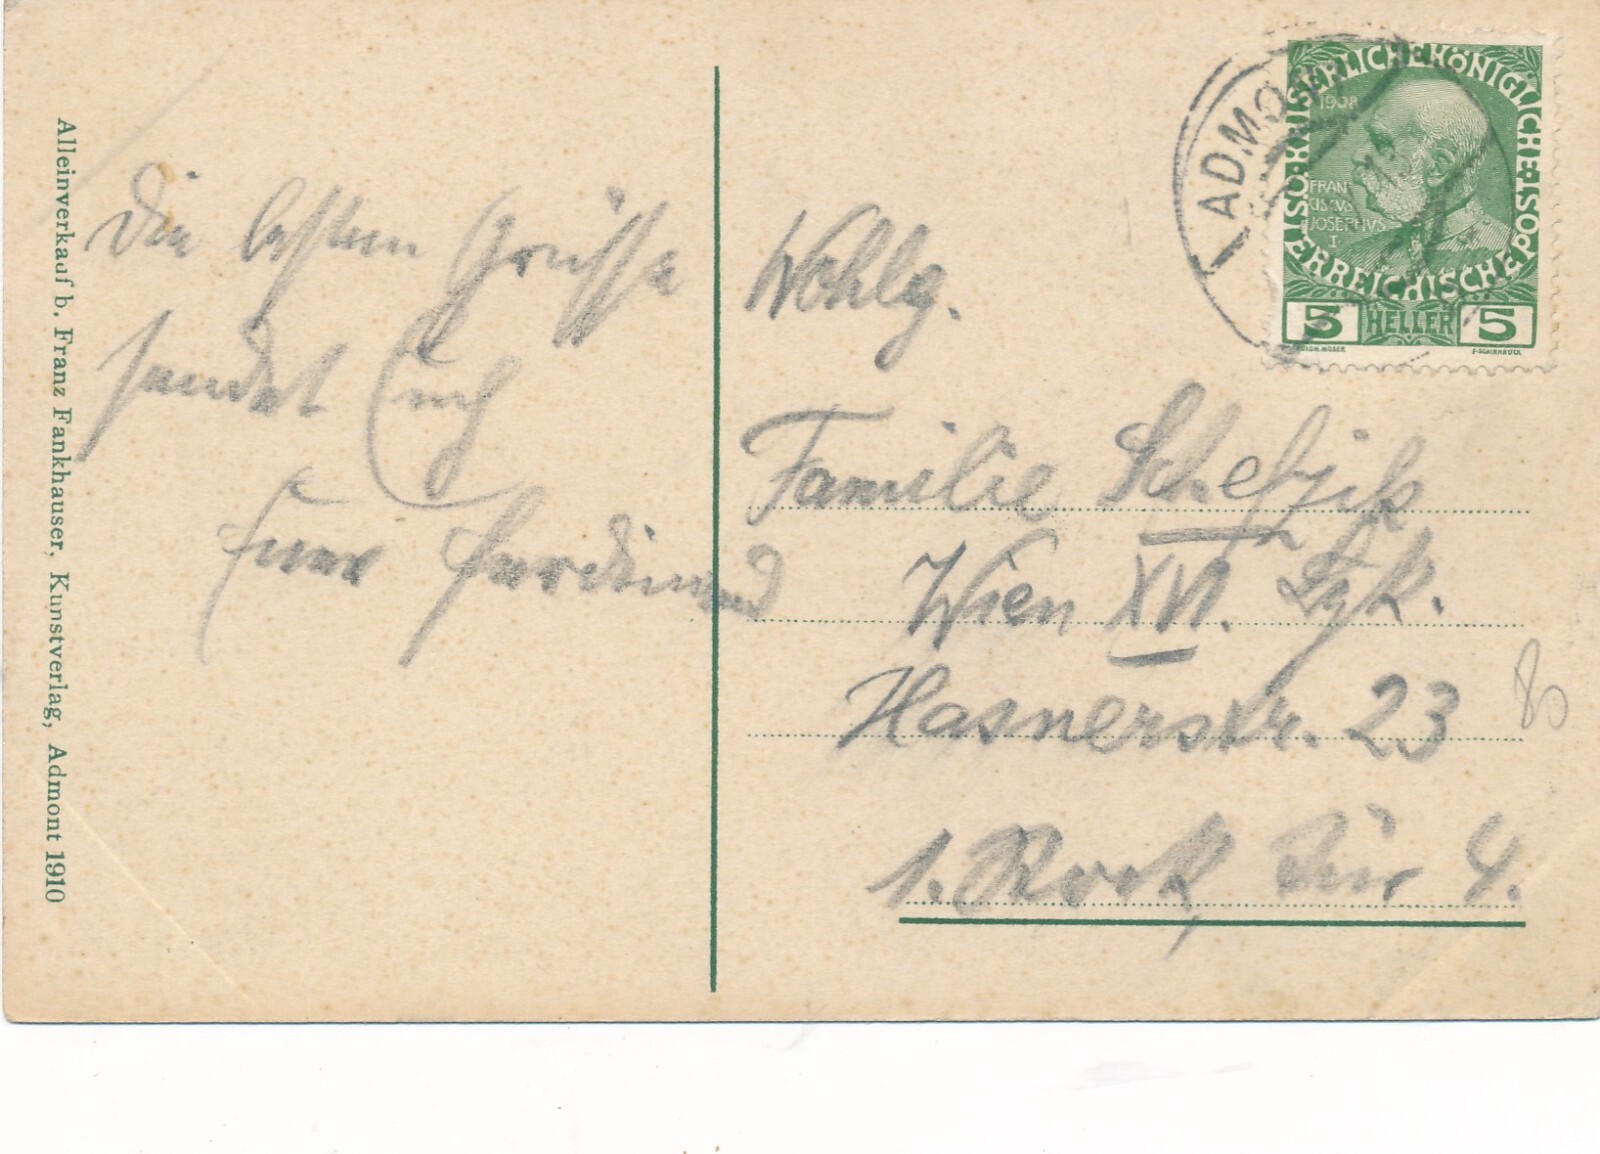 Alleinverkauf b. Franz Fankhauser, Kunstverlag, Admont 1910
Die besten Grüsse
sendet Euch
Euer Ferdinand
ADMONT
KAISERLICHE KÖNIGLICHE
ÖSTERREICHISCHE POST
1908
FRAN
CISCVS
IOSEPHVS
I
5 HELLER 5
Wohlg.
Familie
Wien XVI.
Hasnerstr. 23
1. Tür 4.
80